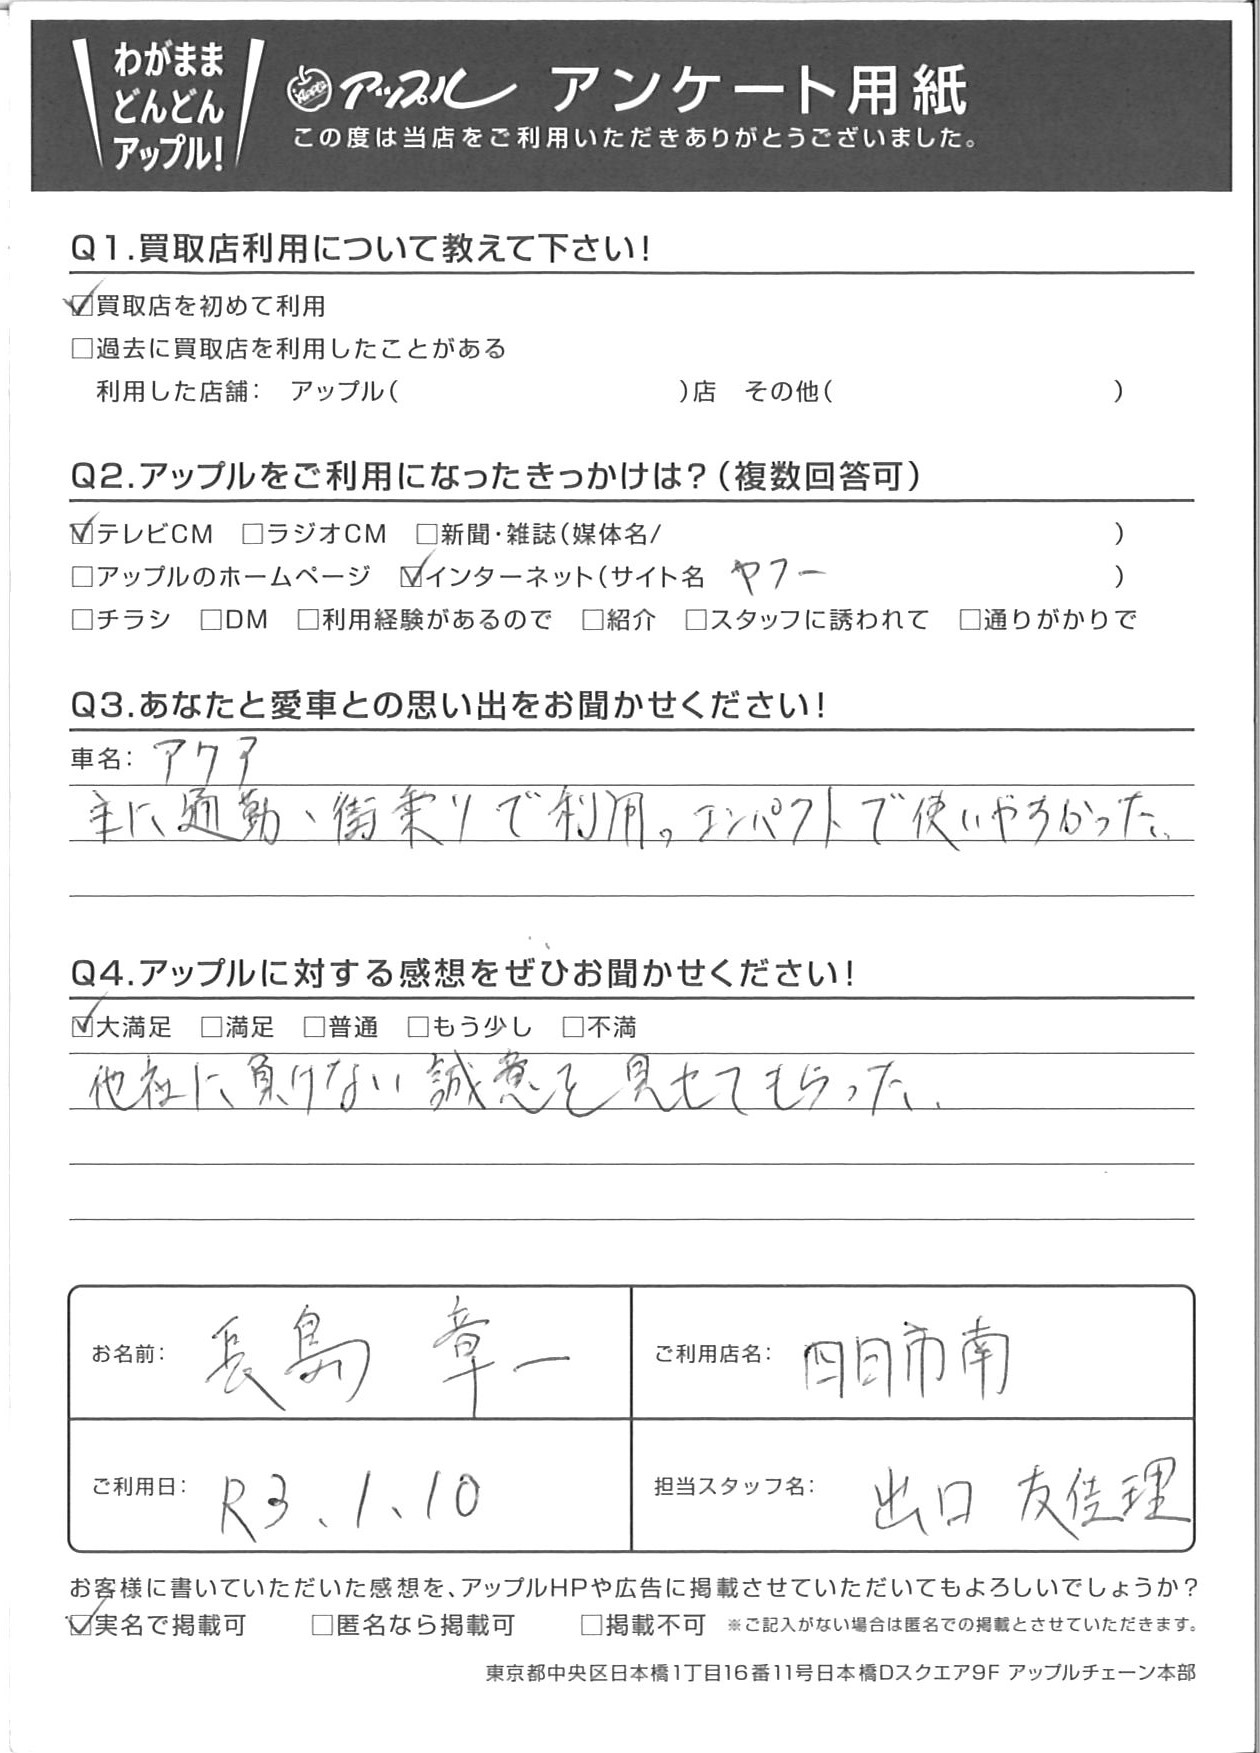 わがまま
どんどん
アップル!
Apple アップル アンケート用紙
この度は当店をご利用いただきありがとうございました。
Q1.買取店利用について教えて下さい!
☑買取店を初めて利用
□過去に買取店を利用したことがある
利用した店舗: アップル( )店 その他( )
Q2.アップルをご利用になったきっかけは?(複数回答可)
☑テレビCM □ラジオCM □新聞・雑誌(媒体名/ )
□アップルのホームページ ☑インターネット(サイト名 ヤフー )
□チラシ □DM □利用経験があるので □紹介 □スタッフに誘われて □通りがかりで
Q3.あなたと愛車との思い出をお聞かせください!
車名: アクア
主に通勤、街乗りで利用。コンパクトで使いやすかった。
Q4.アップルに対する感想をぜひお聞かせください!
☑大満足 □満足 □普通 □もう少し □不満
他社に負けない誠意を見せてもらった。
お名前: 長島 章一 ご利用店名: 四日市南
ご利用日: R3.1.10 担当スタッフ名: 出口 友佳理
お客様に書いていただいた感想を、アップルHPや広告に掲載させていただいてもよろしいでしょうか?
☑実名で掲載可 □匿名なら掲載可 □掲載不可 ※ご記入がない場合は匿名での掲載とさせていただきます。
東京都中央区日本橋1丁目16番11号日本橋Dスクエア9F アップルチェーン本部